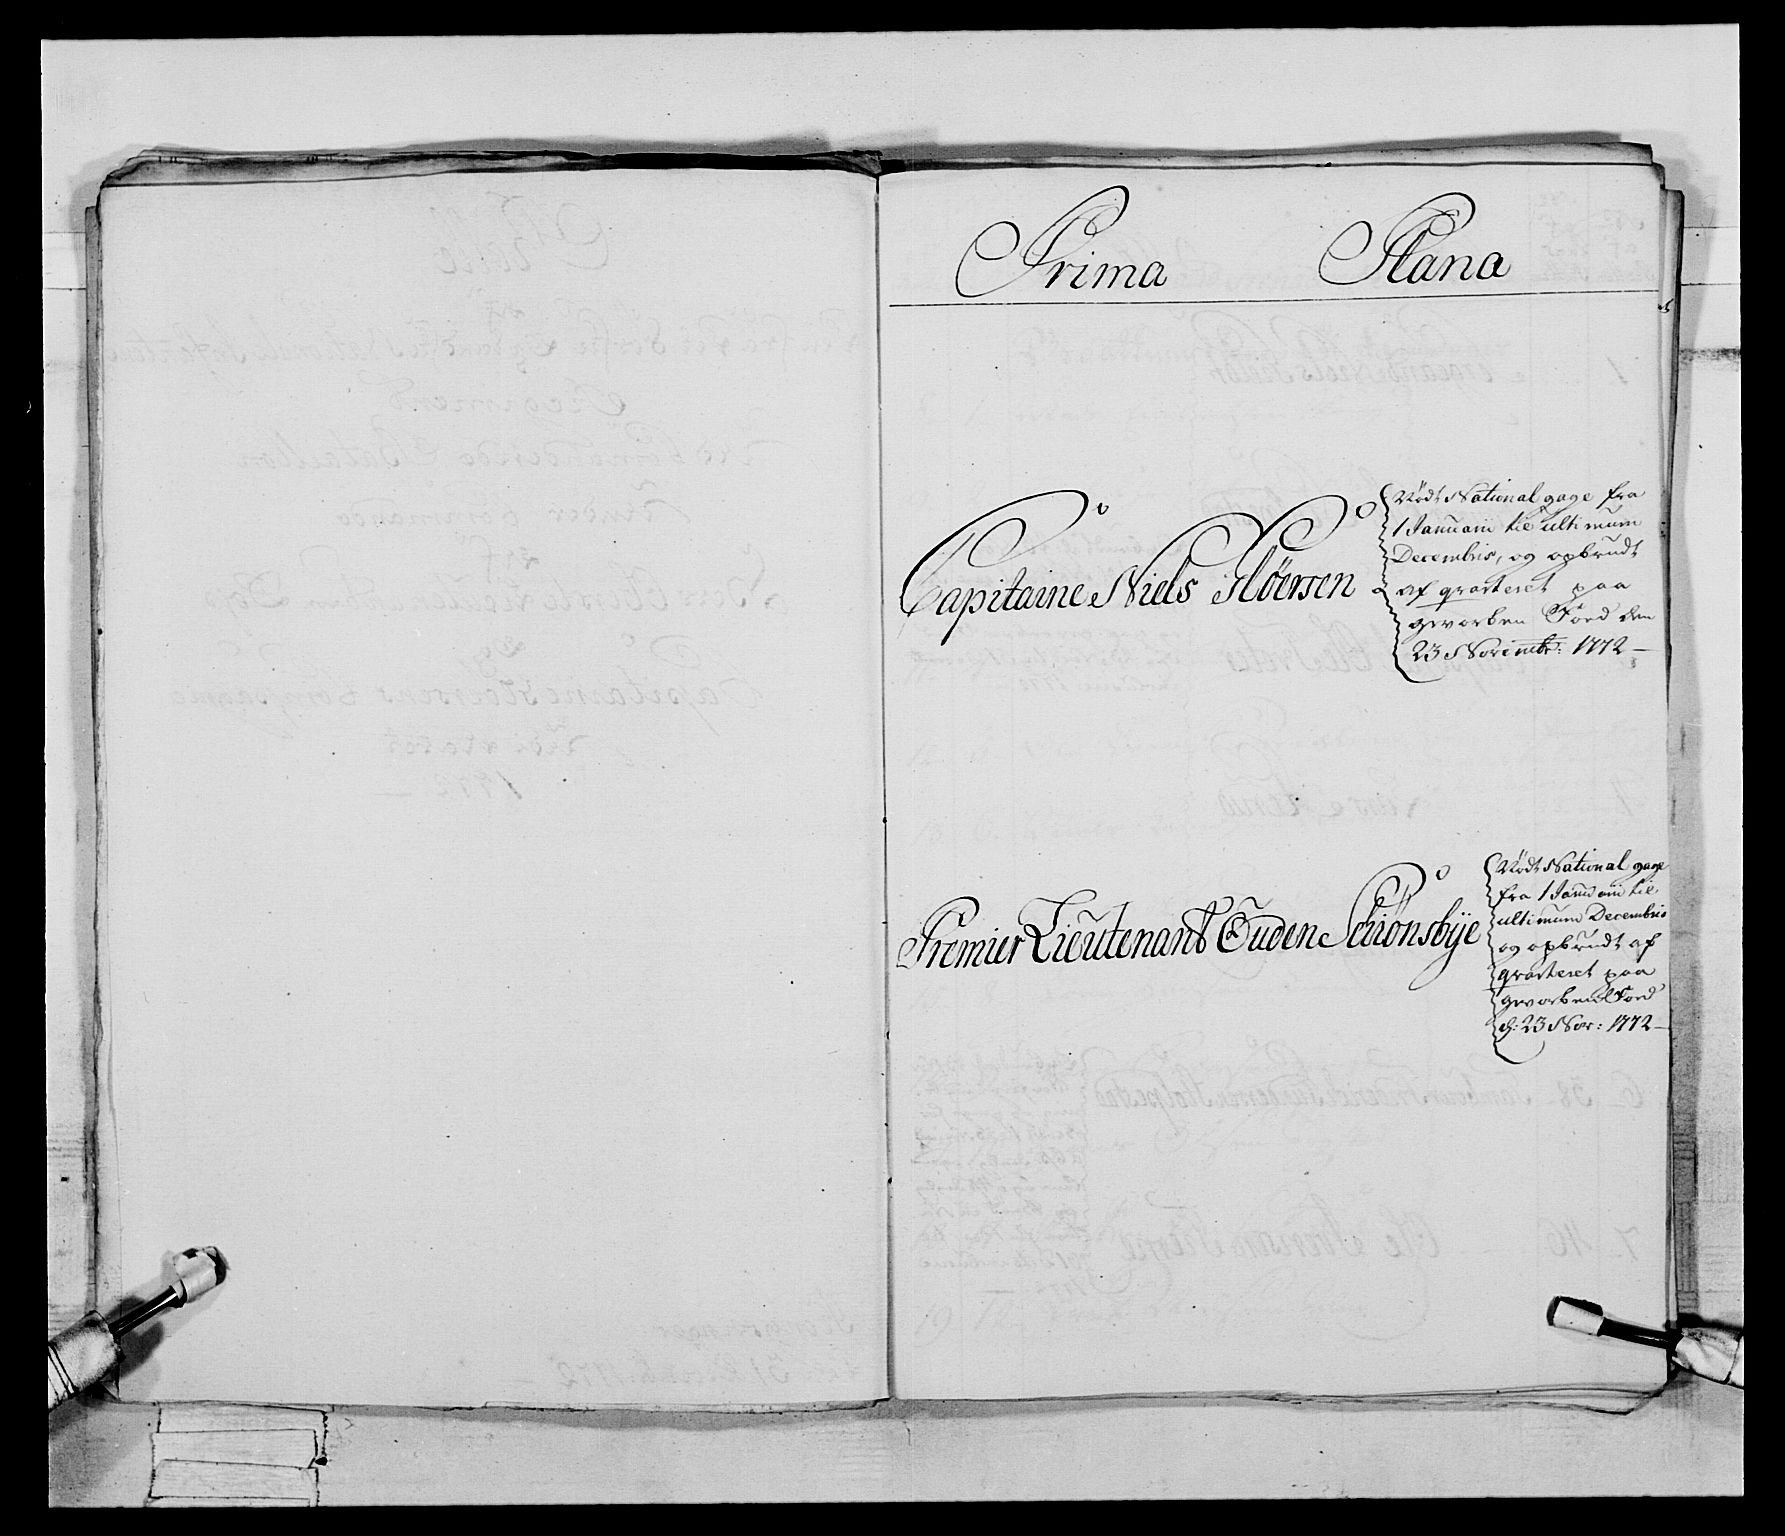 Prima Plana
Capitaine Niels Støersen
Nÿdt National gage fra
1 Januarii til ultimum
Decembris, og opbrudt
af qvarteret paa
gevorben Foed den
23 Novembr: 1772 —
Premier Lieutenant Ouden Schiønsbÿe
Nÿdt National gage
fra 1 Januarii til
ultimum Decembris
og opbrudt af
qvarteret paa
gevorben Foed
d: 23 Nov: 1772 —